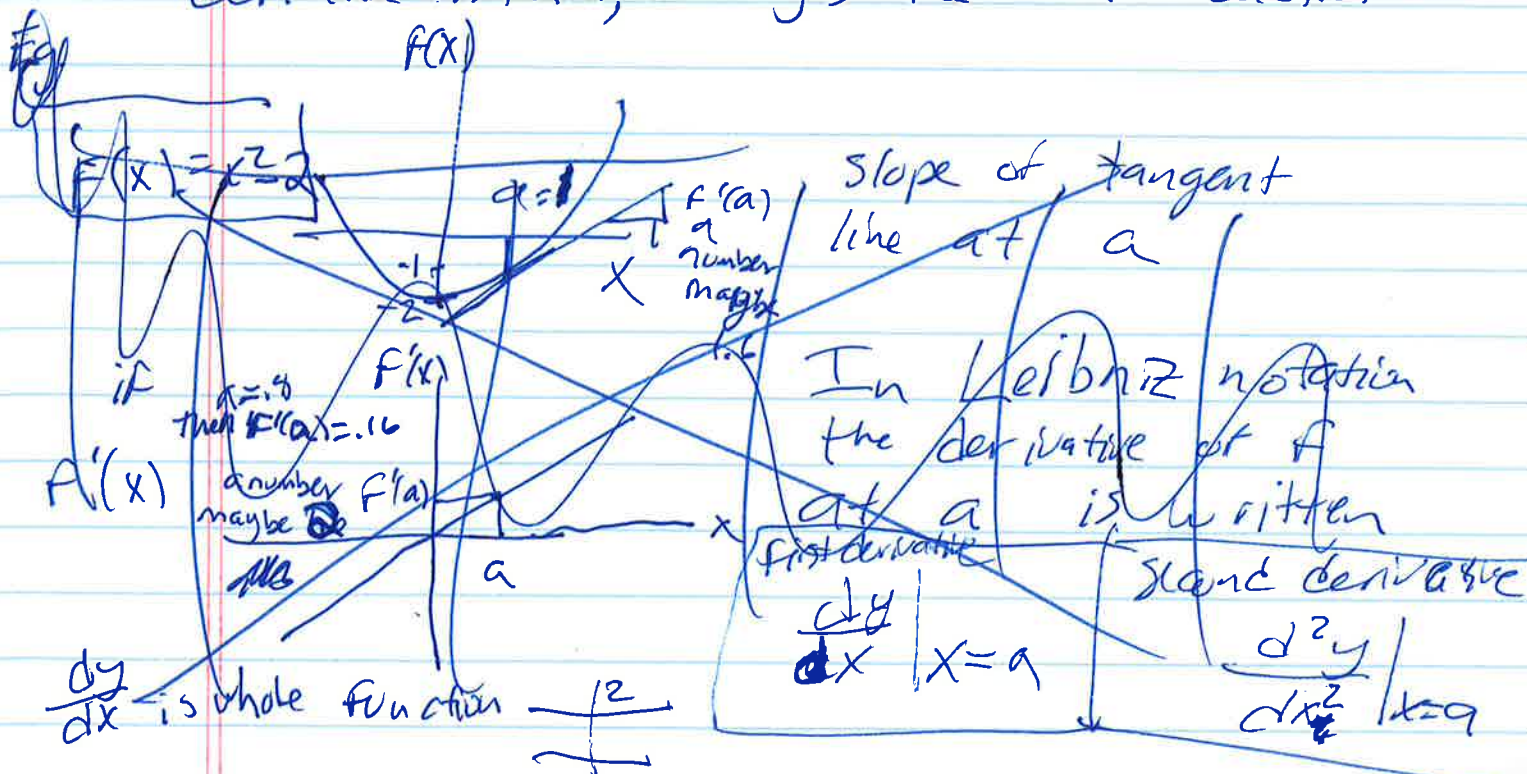 Eg
f(x)
F(x) = x²-2
a=1
F'(a)
a
number
maybe
x
-1
-2
1.6
slope of tangent
line at a
if
a=.8
then F'(a)=.16
F'(x)
F'(x)
a number
maybe
F'(a)
x
a
In Leibniz notation
the derivative of f
at a is written
first derivative
dy/dx | x=a
second derivative
d²y/dx² | x=a
dy/dx is whole function
2